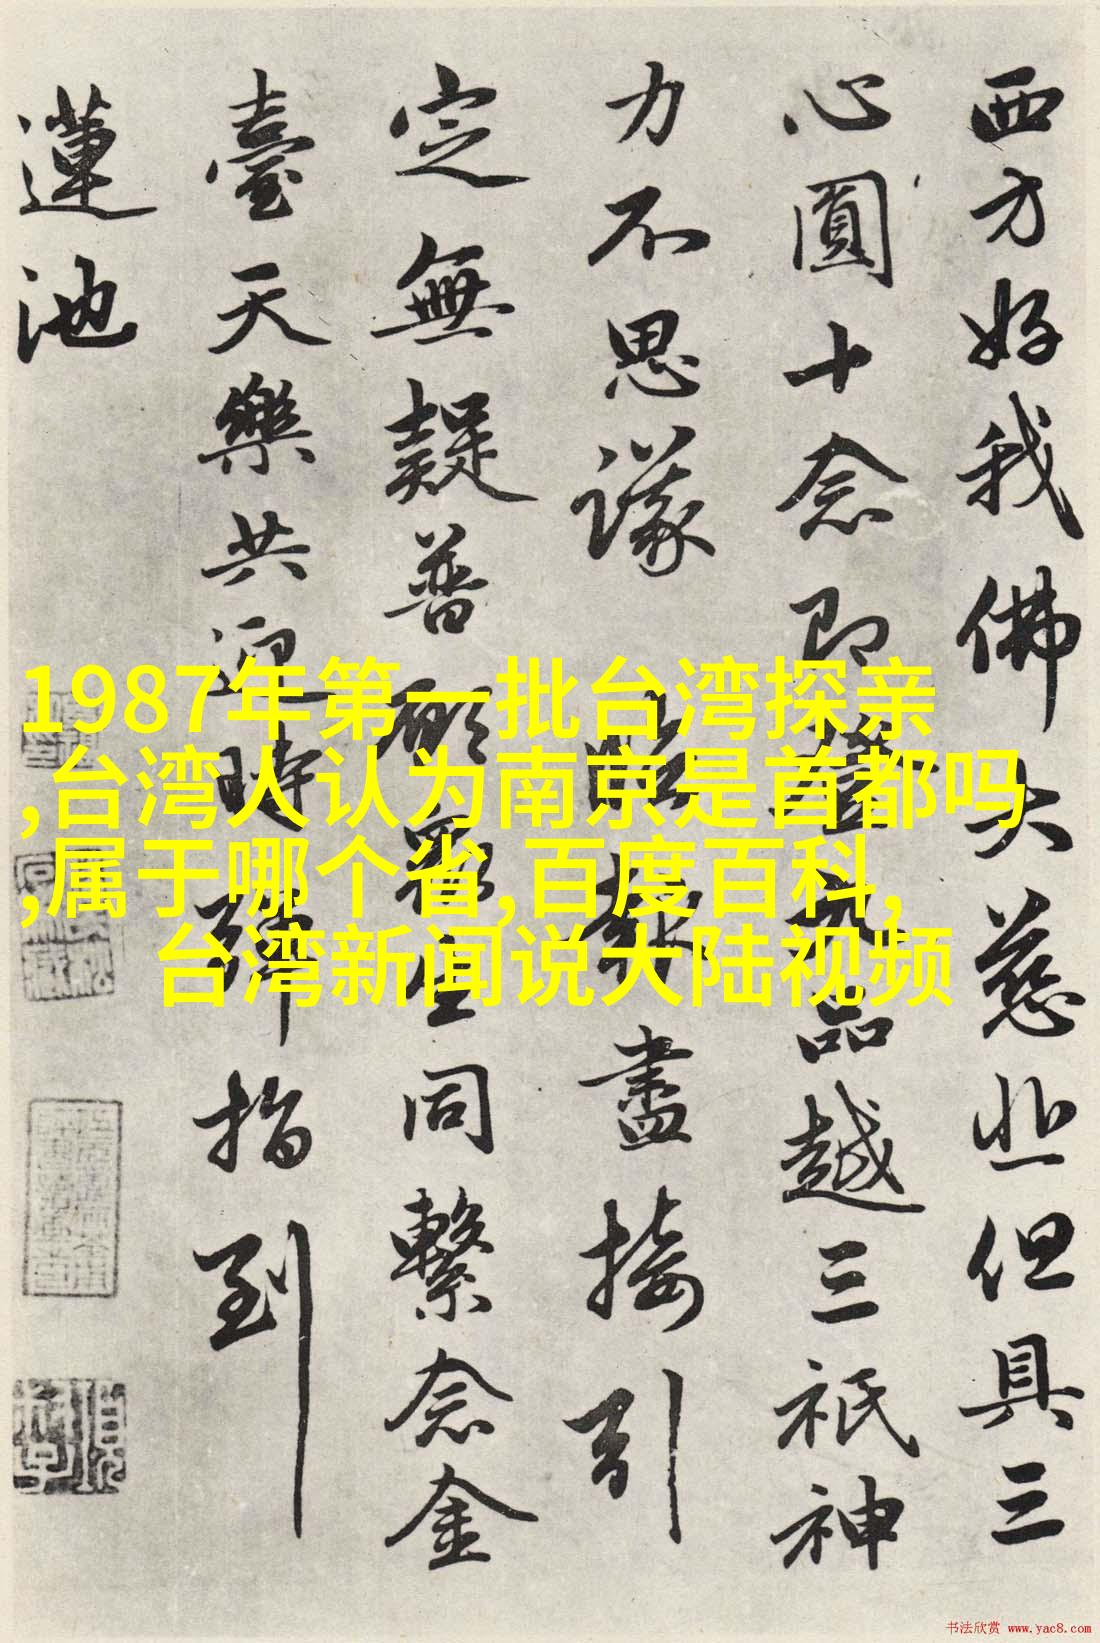 西方好我佛大慈悲但具三
心圓十念即九品越三祇神
力不思議臨報盡接引
定無疑普願眾生同繫念金
臺天樂共迎時彈指到
蓮池
1987年第一批台湾探亲
,台湾人认为南京是首都吗
,属于哪个省,百度百科,
台湾新闻说大陆视频
书法欣赏 www.yac8.com